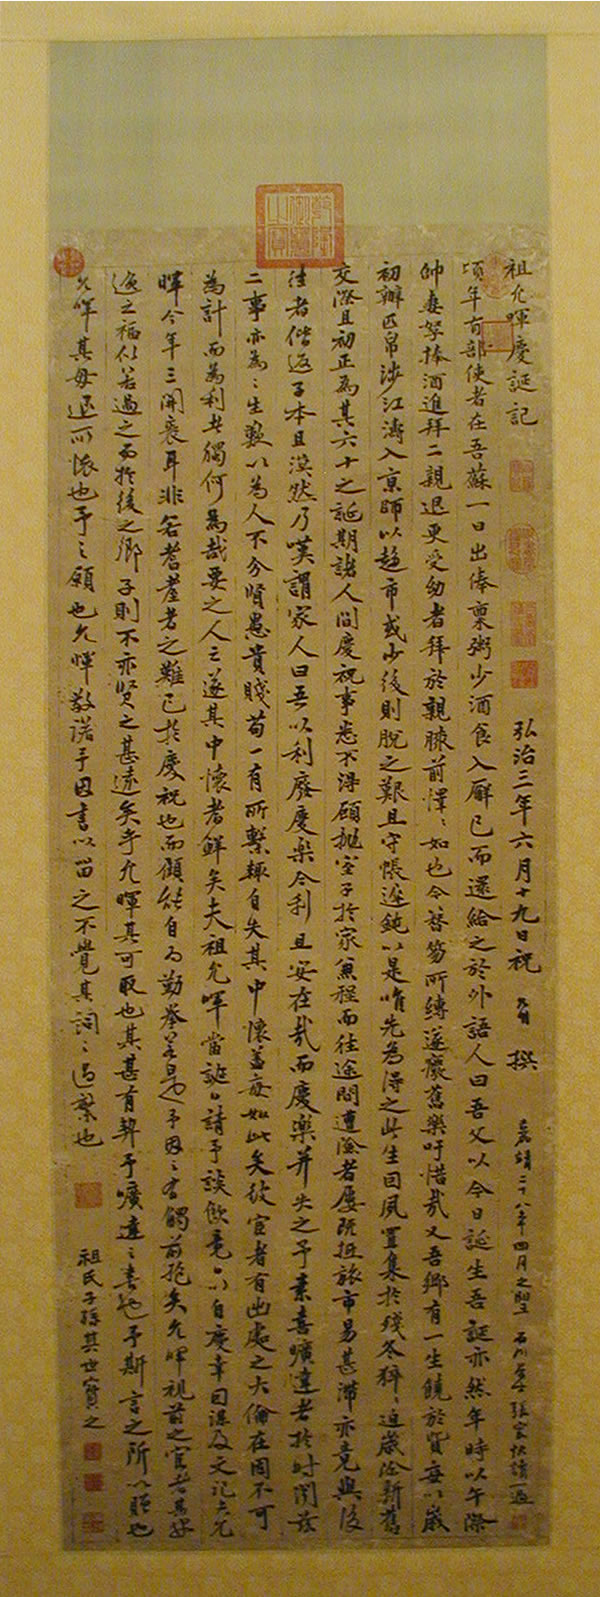 祖允暉慶誕記
弘治三年六月十九日祝允明撰
嘉靖二十八年四月之望石川居士張寰快讀一過
頃年有部使者在吾蘇一日出俸稟粥少酒食入廨已而還給之於外語人曰吾父以今日誕生吾誕亦然年時以午際
帥妻孥捧酒進拜二親退更受幼者拜於親膝前懌懌如也今簪笏所縛遂癈舊樂吁惜哉又吾鄉有一生饒於貲每以歲
初辦匹帛涉江濤入京師以趨市或少後則脫之艱且守帳遲鈍以是唯先為得之此生回夙置集於殘冬猝猝迫歲沿新舊
交際且初正為其六十之誕期諸人間慶祝事悉不得顧拋室子於家兼程而往途間遭澁者屢既抵旅市易甚滯亦竟與後
往者偕返子本且漠然乃嘆謂家人曰吾以利廢慶樂今利且安在哉而慶樂并失之予素喜曠達者於時聞茲
二事亦為之生嘅以為人不分賢愚貴賤苟一有所繫輒自失其中懷蓋每如此矣彼宦者有出處之大倫在固不可
為計而為利者獨何為哉要之人之遂其中懷者鮮矣夫祖允暉當誕請予談飲竟以自慶幸回謀及文記之允
暉今年三開袠耳非若耆耋者之難已於慶祝也而傾能自為勤拳若是予因有觸前抱矣允暉視前之宦者
逸之福似若過之而於後之鄉子則不亦賢之甚遠矣乎允暉其可取也其甚有契予曠達之素也予斯言之所以贈也
允暉其毋遏所懷也予之願也允暉敬諾予因書以留之不覺其詞之過繁也
祖氏子孫其世寶之